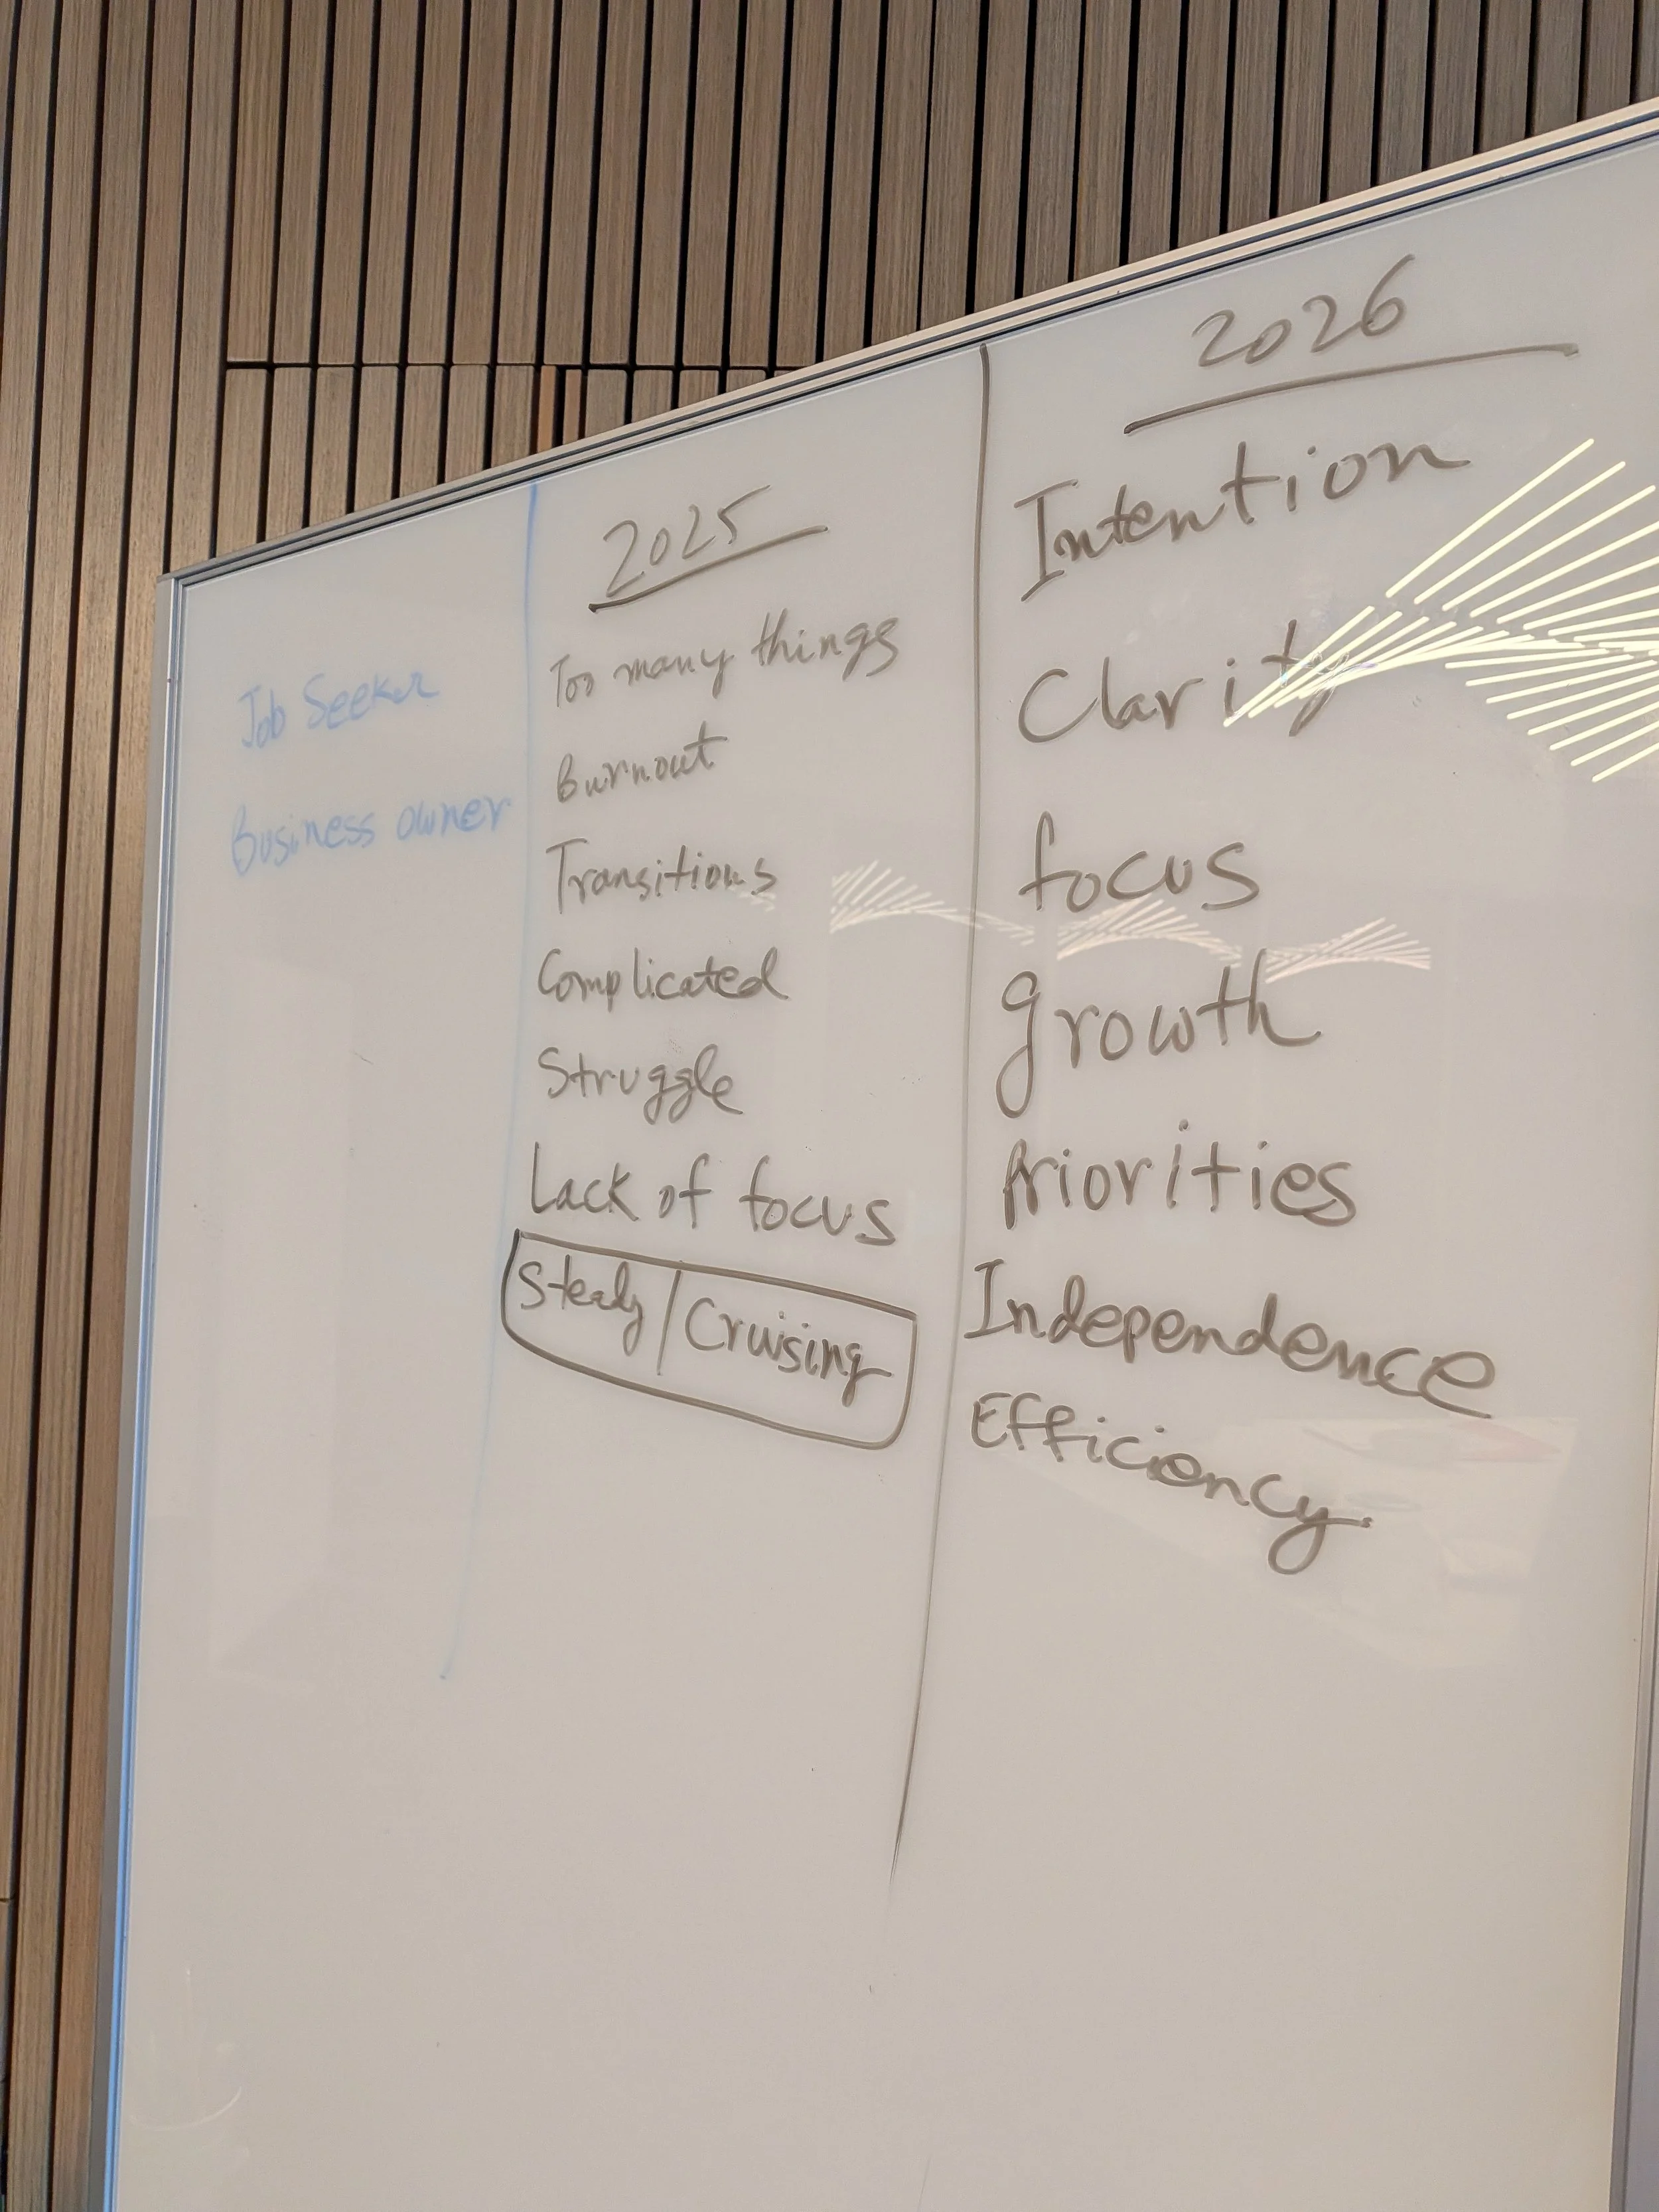 Job Seeker
Business owner
2025
Too many things
Burnout
Transitions
Complicated
Struggle
Lack of focus
Steady / Cruising
2026
Intention
Clarity
focus
growth
Priorities
Independence
Efficiency